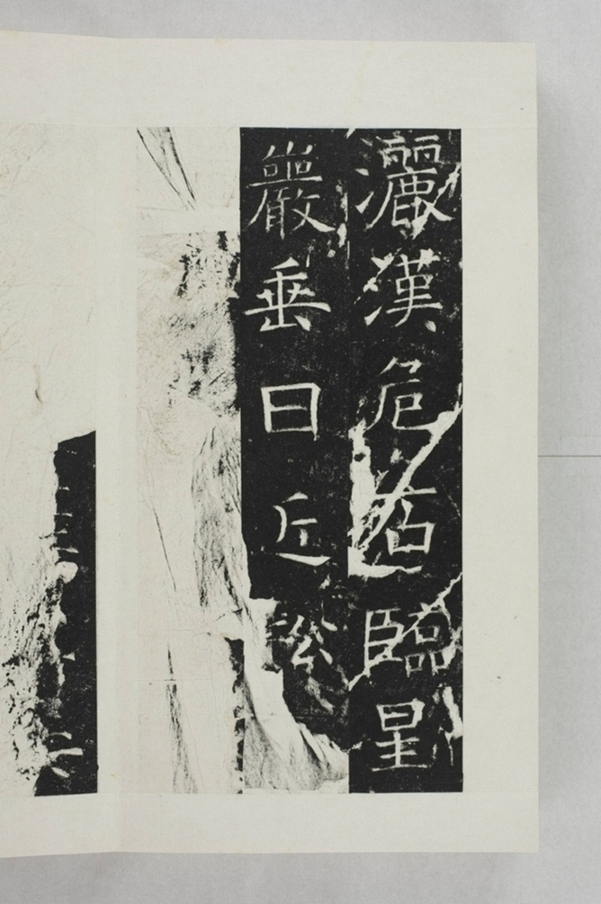 灑漢危石臨星
巖垂日近松